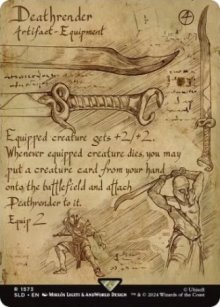 Deathrender
Artifact-Equipment
Equipped creature gets +2/+2.
Whenever equipped creature dies, you may
put a creature card from your hand
onto the battlefield and attach
Deathrender to it.
Equip 2
R 1573
SLD • EN Miklós Ligeti & AnnWorld Design
© Ubisoft
™ & © 2024 Wizards of the Coast